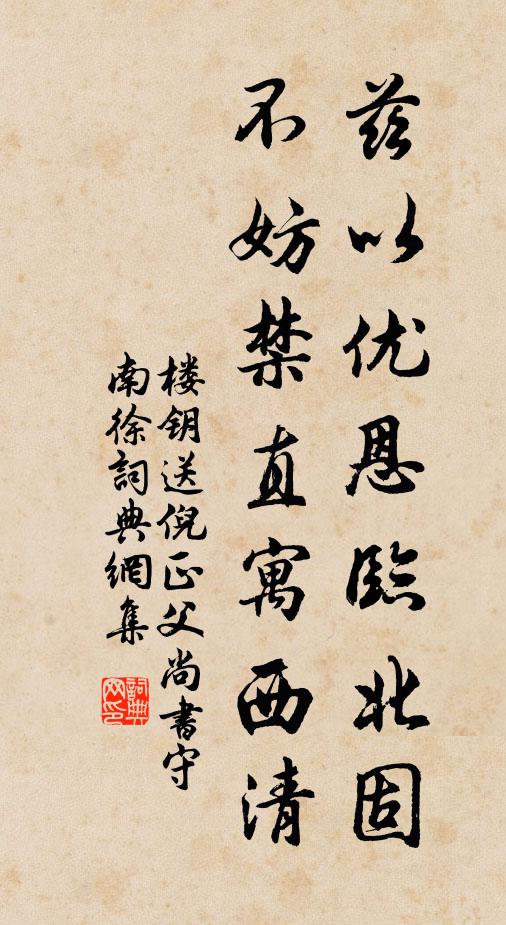 兹以优恩臨北固
不妨禁直寓西清
楼钥送倪正父尚書守
南徐詞典網集
詞典
网印